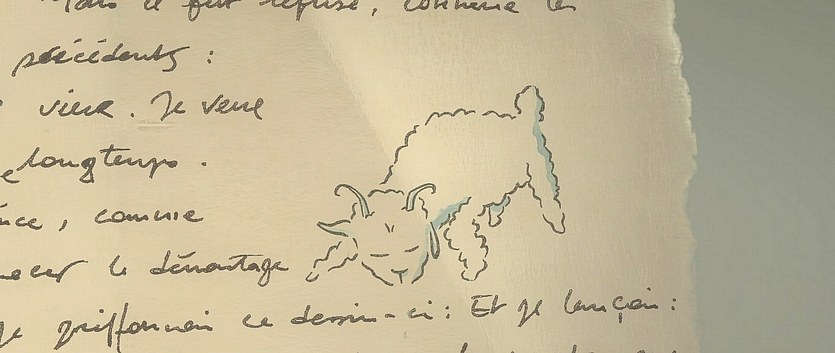 Mais il fut refusé, comme les
précédents :
vieux. Je veux
longtemps.
comme
le démontage
griffonnai ce dessin-ci : Et je lançai :